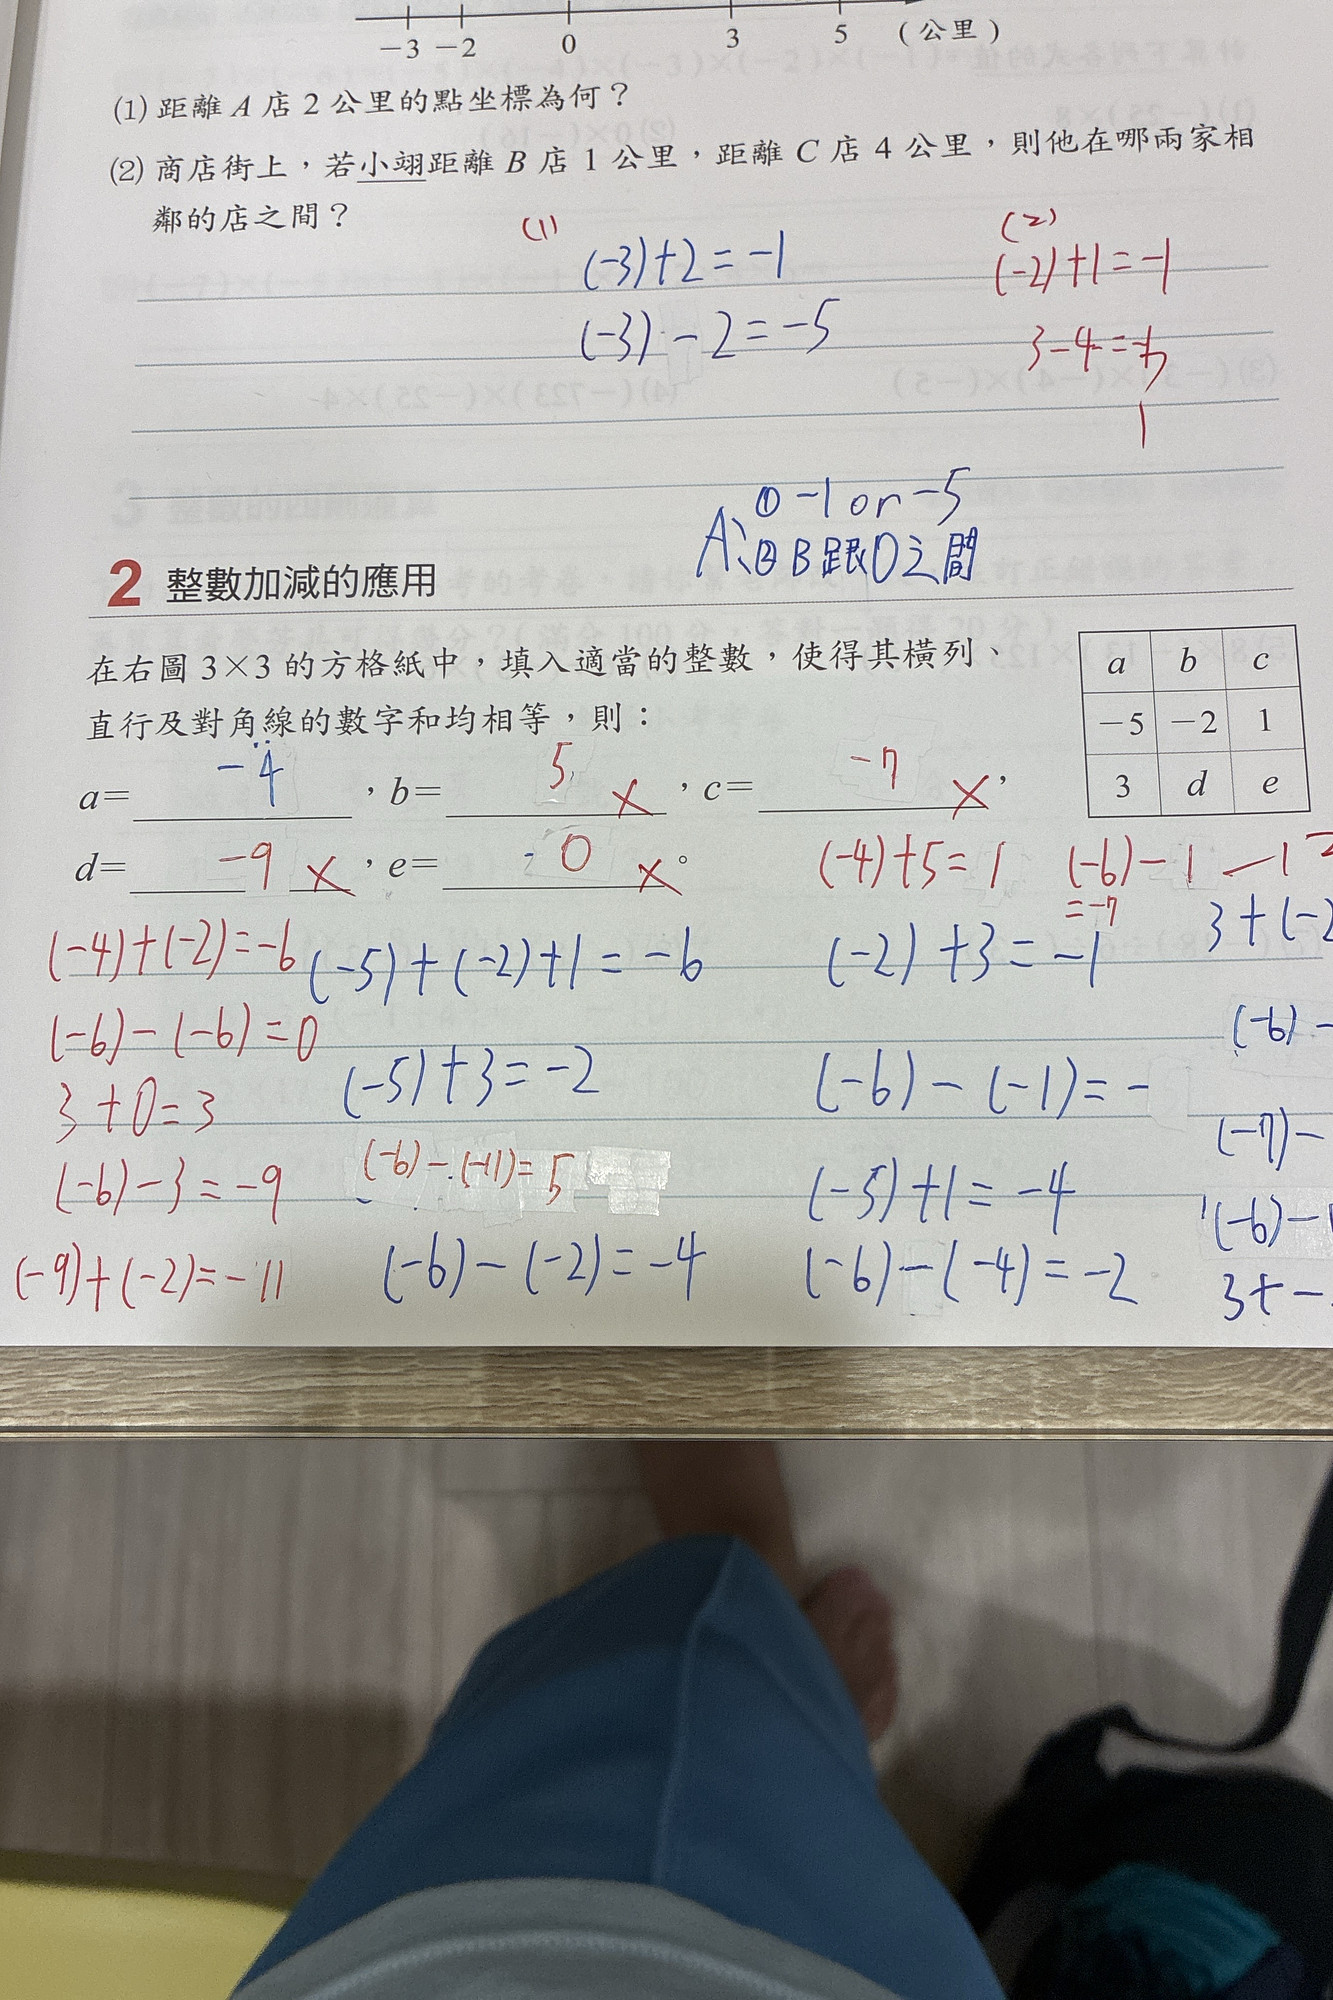 -3 -2 0 3 5 (公里)
(1) 距離 A 店 2 公里的點坐標為何？
(2) 商店街上，若小翊距離 B 店 1 公里，距離 C 店 4 公里，則他在哪兩家相
鄰的店之間？
(1) (2)
(-3)+2=-1 (-2)+1=-1
(-3)-2=-5 3-4=
1
A: ① -1 or -5
② B跟D之間
2 整數加減的應用
在右圖 3×3 的方格紙中，填入適當的整數，使得其橫列、
直行及對角線的數字和均相等，則：
a b c
-5 -2 1
3 d e
a= -4 ，b= 5 × ，c= -7 × ，
d= -9 × ，e= 0 × 。
(-4)+5=1 (-6)-1
=-7
(-4)+(-2)=-6 (-5)+(-2)+1=-6 (-2)+3=-1 3+(-2
(-6)-(-6)=0 (-6)-
3+0=3 (-5)+3=-2 (-6)-(-1)=- (-7)-
(-6)-3=-9 (-6)-(-11)=5 (-5)+1=-4 (-6)-
(-9)+(-2)=-11 (-6)-(-2)=-4 (-6)-(-4)=-2 3+-